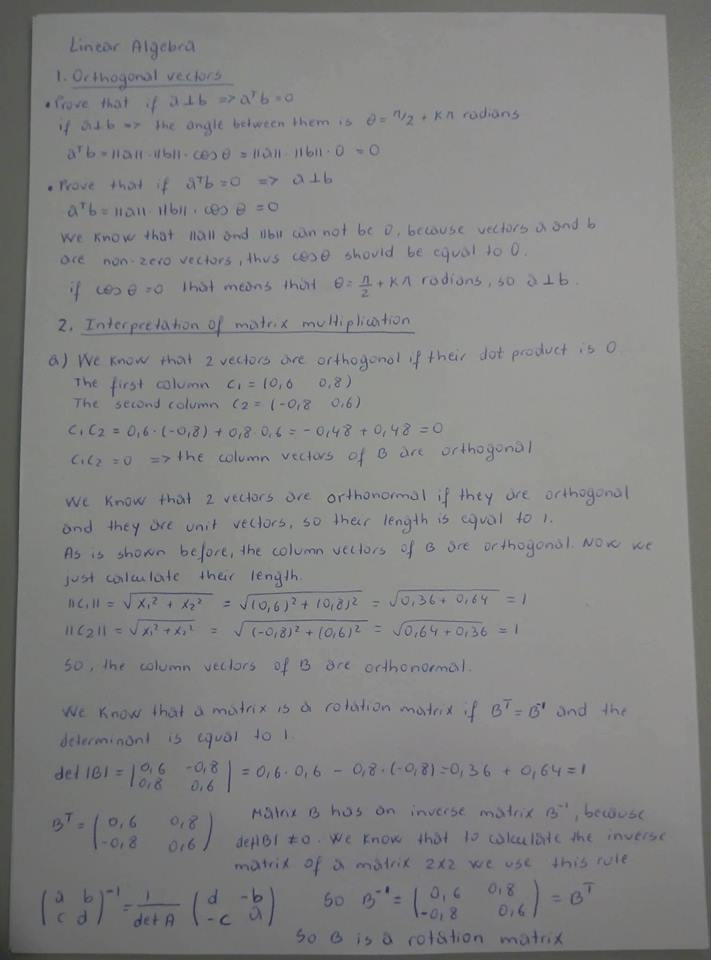 Linear Algebra
1. Orthogonal vectors
• Prove that if a⊥b => aᵀb=0
if a⊥b => the angle between them is θ=π/2 + kπ radians
aᵀb=||a||·||b||·cosθ=||a||·||b||·0=0
• Prove that if aᵀb=0 => a⊥b
aᵀb=||a||·||b||·cosθ=0
We know that ||a|| and ||b|| can not be 0, because vectors a and b
are non-zero vectors, thus cosθ should be equal to 0.
if cosθ=0 that means that θ=π/2 + kπ radians, so a⊥b.
2. Interpretation of matrix multiplication
a) We know that 2 vectors are orthogonal if their dot product is 0.
The first column C₁ = (0,6 0,8)
The second column C₂ = (-0,8 0,6)
C₁C₂ = 0,6·(-0,8) + 0,8·0,6 = -0,48 + 0,48 = 0
C₁C₂ = 0 => the column vectors of B are orthogonal
We know that 2 vectors are orthonormal if they are orthogonal
and they are unit vectors, so their length is equal to 1.
As is shown before, the column vectors of B are orthogonal. Now we
just calculate their length.
||C₁|| = √(x₁² + x₂²) = √((0,6)² + (0,8)²) = √(0,36 + 0,64) = 1
||C₂|| = √(x₁² + x₂²) = √((-0,8)² + (0,6)²) = √(0,64 + 0,36) = 1
So, the column vectors of B are orthonormal.
We know that a matrix is a rotation matrix if Bᵀ = B⁻¹ and the
determinant is equal to 1.
det|B| = |0,6 -0,8| = 0,6·0,6 - 0,8·(-0,8) = 0,36 + 0,64 = 1
|0,8 0,6|
Bᵀ = (0,6 0,8) Matrix B has an inverse matrix B⁻¹, because
(-0,8 0,6) det|B| ≠ 0. We know that to calculate the inverse
matrix of a matrix 2x2 we use this rule
(a b)⁻¹ = 1/det A (d -b) So B⁻¹ = (0,6 0,8) = Bᵀ
(c d) (-c a) (-0,8 0,6)
So B is a rotation matrix